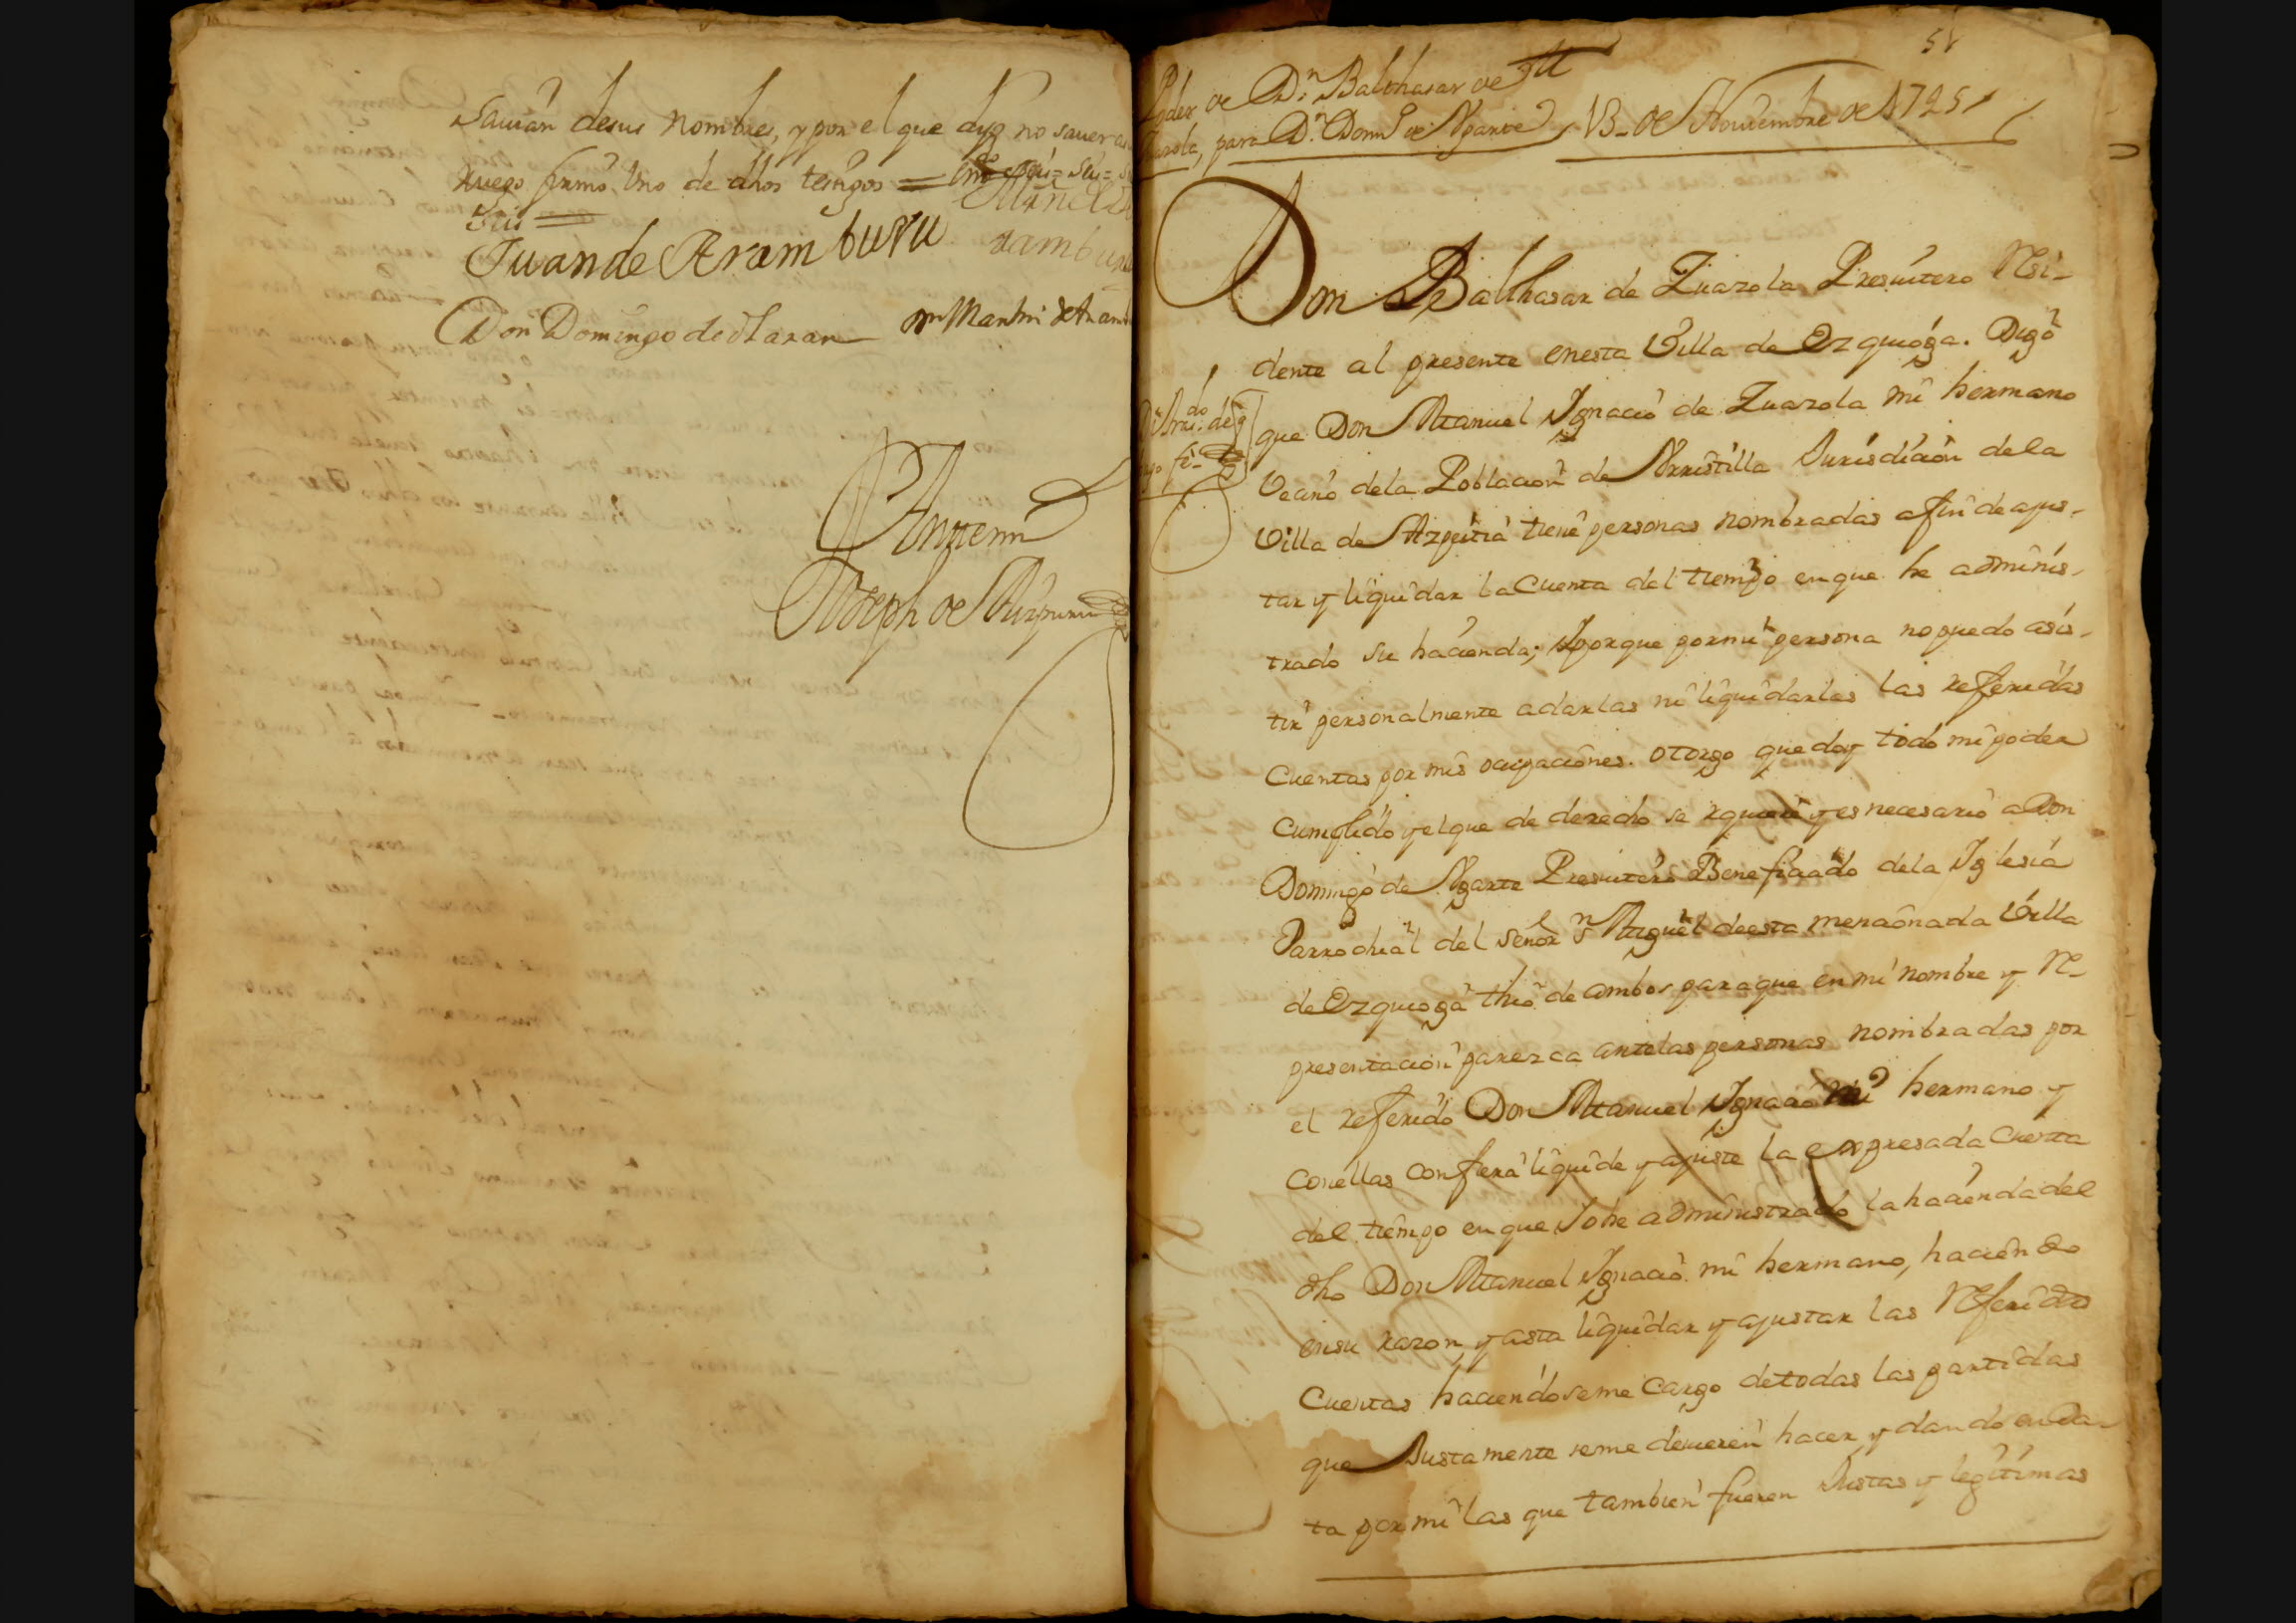 Sauian desus nombres, y por el que dijo no sauer a su
ruego firmó Uno de dhos testigos =
Juan de Aramburu
Don Domingo de
Antemi
Joseph de Aizpuru
51
Poder de Dn Balthasar de
Zuazola, para Dn Domo de Ugarte, 13 de Nouiembre de 1725
Don Balthasar de Zuazola Presuitero Resi-
dente al presente enesta Villa de Ezquioga. Digo
que Don Manuel Ignacio de Zuazola mi hermano
Vecino dela Poblacion de Urrestilla Jurisdicion dela
Villa de Azpeitia tiene personas nombradas afin de ajus-
tar y liquidar la Cuenta del tiempo enque he adminis-
trado su hacienda; Y porque por mi persona no puedo asis-
tir personalmente adarlas ni liquidarlas las referidas
Cuentas por mis ocupaciones. otorgo que doy todo mi poder
Cumplido y el que de derecho se requiere y es necesario a Don
Domingo de Ugarte Presuitero Beneficiado dela Iglesia
Parrochial del señor sn Miguel deesta mencionada Villa
de Ezquioga thio de ambos paraque en mi nombre y Re-
presentacion parezca antelas personas nombradas por
el referido Don Manuel Ignacio mi hermano y
conellas confiera liquide y ajuste la expresada Cuenta
del tiempo en que Yo he administrado la hacienda del
dho Don Manuel Ignacio mi hermano, haciendo
ensu razon, y asta liquidar y ajustar las Referidas
Cuentas haciendoseme cargo detodas las partidas
que Justamente seme deuieren hacer y dando en Da-
ta por mi las que tambien fueren Justas y legitimas